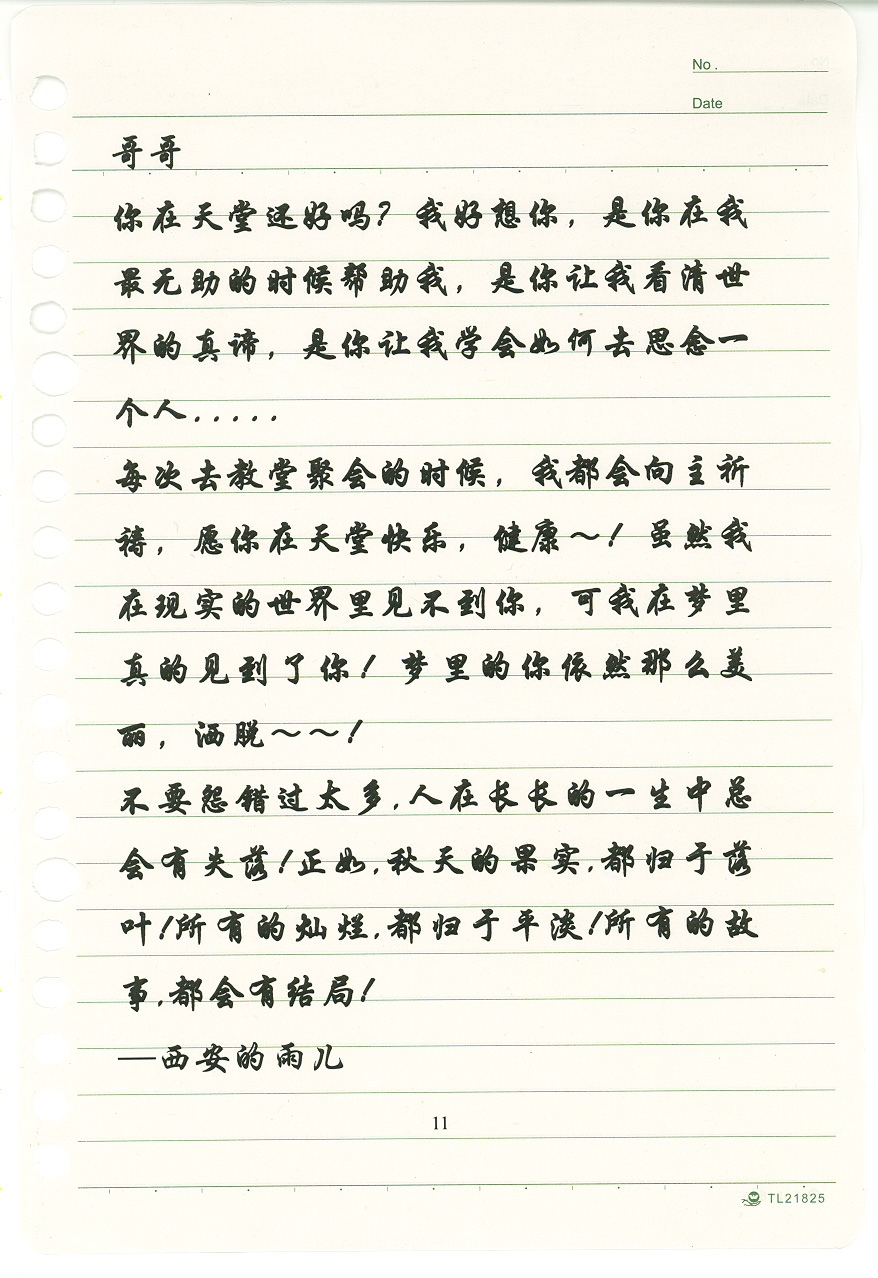 No .
Date
哥哥
你在天堂还好吗？我好想你，是你在我
最无助的时候帮助我，是你让我看清世
界的真谛，是你让我学会如何去思念一
个人.....
每次去教堂聚会的时候，我都会向主祈
祷，愿你在天堂快乐，健康～！虽然我
在现实的世界里见不到你，可我在梦里
真的见到了你！梦里的你依然那么美
丽，洒脱～～！
不要怨错过太多,人在长长的一生中总
会有失落!正如,秋天的果实,都归于落
叶!所有的灿烂,都归于平淡!所有的故
事,都会有结局!
—西安的雨儿
11
TL21825